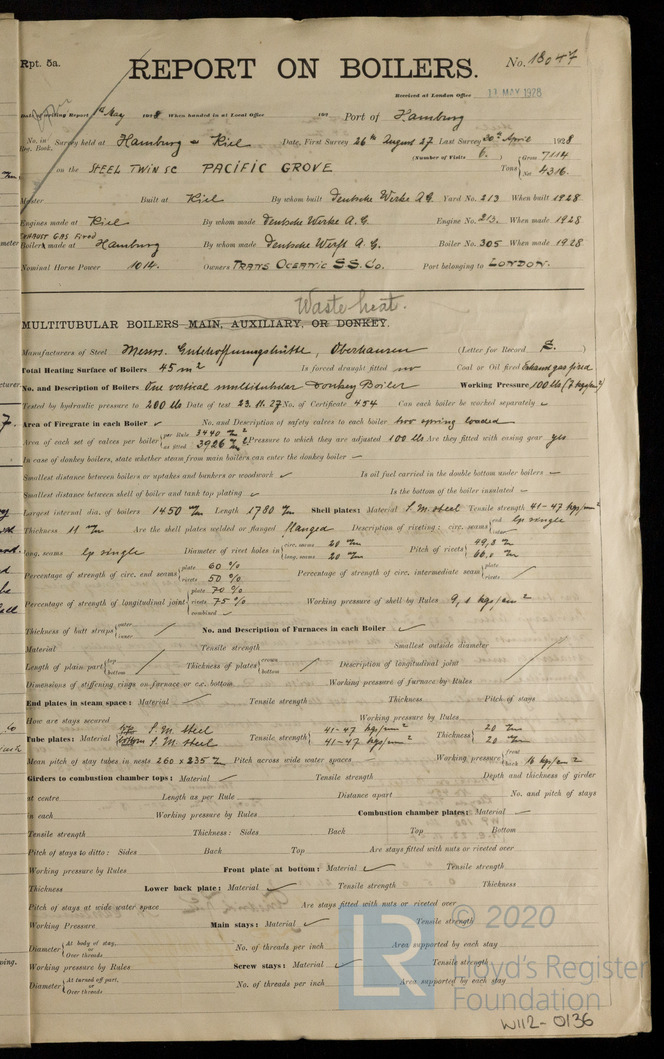 Rpt. 5a.
REPORT ON BOILERS.
No. 18047
Received at London Office 17 MAY 1928
Date of writing Report May 1928 When handed in at Local Office 192 Port of Hamburg
No. in Reg. Book. Survey held at Hamburg & Kiel Date, First Survey 26th August 27 Last Survey 20th April 1928
(Number of Visits 6.) Gross 7114
on the STEEL TWIN SC PACIFIC GROVE Tons Net 4316.
Master Built at Kiel By whom built Deutsche Werke A.G. Yard No. 213 When built 1928
Engines made at Kiel By whom made Deutsche Werke A.G. Engine No. 213. When made 1928
EXHAUST GAS FIRED
Boilers made at Hamburg By whom made Deutsche Werft A.G. Boiler No. 305 When made 1928
Nominal Horse Power 1014. Owners TRANS OCEANIC SS. Co. Port belonging to LONDON.
Waste heat.
MULTITUBULAR BOILERS MAIN, AUXILIARY, OR DONKEY.
Manufacturers of Steel Messrs. Gutehoffnungshütte, Oberhausen (Letter for Record )
Total Heating Surface of Boilers 45 m² Is forced draught fitted no Coal or Oil fired Exhaust gas fired
No. and Description of Boilers One vertical multitubular Donkey Boiler Working Pressure 100 lbs (7 kgs/cm²)
Tested by hydraulic pressure to 200 lbs Date of test 23.11.27 No. of Certificate 454 Can each boiler be worked separately ✓
Area of Firegrate in each Boiler ✓ No. and Description of safety valves to each boiler two spring loaded
Area of each set of valves per boiler per Rule 3440 as fitted 3926 Pressure to which they are adjusted 100 lbs Are they fitted with easing gear yes
In case of donkey boilers, state whether steam from main boilers can enter the donkey boiler –
Smallest distance between boilers or uptakes and bunkers or woodwork ✓ Is oil fuel carried in the double bottom under boilers –
Smallest distance between shell of boiler and tank top plating ✓ Is the bottom of the boiler insulated –
Largest internal dia. of boilers 1450 m/m Length 1780 m/m Shell plates: Material S.M. steel Tensile strength 41-47 kgs/mm²
Thickness 11 m/m Are the shell plates welded or flanged flanged Description of riveting: circ. seams end lp single
long. seams lp single Diameter of rivet holes in circ. seams 20 m/m long. seams 20 m/m Pitch of rivets 49,3 m/m
Percentage of strength of circ. end seams plate 60 % rivets 50 % Percentage of strength of circ. intermediate seam plate rivets
Percentage of strength of longitudinal joint plate 70 % rivets 75 % combined ✓ Working pressure of shell by Rules 9,1 kgs/cm²
Thickness of butt straps outer inner No. and Description of Furnaces in each Boiler ✓
Material Tensile strength Smallest outside diameter
Length of plain part top bottom Thickness of plates crown bottom Description of longitudinal joint
Dimensions of stiffening rings on furnace or c.c. bottom Working pressure of furnace by Rules
End plates in steam space: Material Tensile strength Thickness Pitch of stays
How are stays secured Working pressure by Rules
Tube plates: Material top S.M. steel bottom S.M. steel Tensile strength 41-47 kgs/mm² 41-47 kgs/mm² Thickness 20 m/m 20 m/m
Mean pitch of stay tubes in nests 260 x 235 m/m Pitch across wide water spaces – Working pressure front back 16 kgs/cm²
Girders to combustion chamber tops: Material ✓ Tensile strength Depth and thickness of girder
at centre Length as per Rule Distance apart No. and pitch of stays
in each Working pressure by Rules Combustion chamber plates: Material –
Tensile strength Thickness: Sides Back Top Bottom
Pitch of stays to ditto: Sides Back Top Are stays fitted with nuts or riveted over
Working pressure by Rules Front plate at bottom: Material ✓ Tensile strength
Thickness Lower back plate: Material ✓ Tensile strength Thickness
Pitch of stays at wide water space Are stays fitted with nuts or riveted over
Working Pressure Main stays: Material ✓ Tensile strength
Diameter At body of stay, or Over threads No. of threads per inch Area supported by each stay
Working pressure by Rules Screw stays: Material ✓ Tensile strength
Diameter At turned off part, or Over threads No. of threads per inch Area supported by each stay
© 2020
LR
Lloyd's Register
Foundation
W112-0136